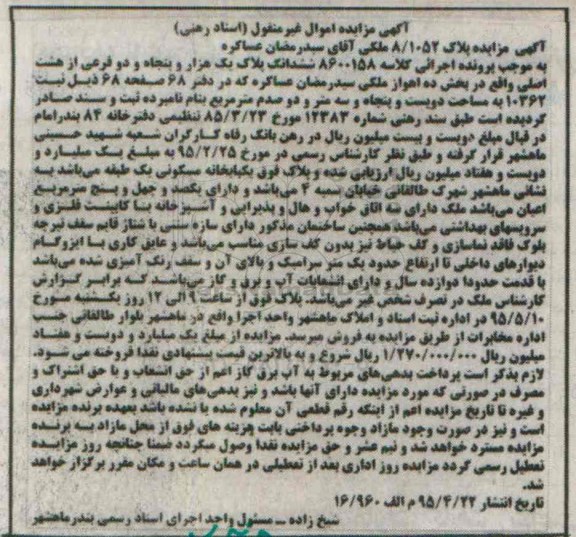 آگهی مزایده اموال غیرمنقول (اسناد رهنی)
آگهی مزایده پلاک ۸/۱۰۵۲ ملکی آقای سیدرمضان عساکره
به موجب پرونده اجرائی کلاسه ۸۶۰۰۱۵۸ ششدانگ پلاک یک هزار و پنجاه و دو فرعی از هشت
اصلی واقع در بخش ده اهواز ملکی سیدرمضان عساکره که در دفتر ۶۸ صفحه ۶۸ ذیل ثبت
۱۰۳۶۲ به مساحت دویست و پنجاه و سه متر و دو صدم مترمربع بنام نامبرده ثبت و سند صادر
گردیده است طبق سند رهنی شماره ۱۲۳۸۳ مورخ ۸۵/۳/۲۳ تنظیمی دفترخانه ۸۴ بندرامام
در قبال مبلغ دویست و بیست میلیون ریال در رهن بانک رفاه کارگران شعبه شهید حسینی
ماهشهر قرار گرفته و طبق نظر کارشناس رسمی در مورخ ۹۵/۲/۲۵ به مبلغ یک میلیارد و
دویست و هفتاد میلیون ریال ارزیابی شده و پلاک فوق یکبابخانه مسکونی یک طبقه می‌باشد به
نشانی ماهشهر شهرک طالقانی خیابان سمیه ۴ می‌باشد و دارای یکصد و چهل و پنج مترمربع
اعیان می‌باشد ملک دارای سه اتاق خواب و هال و پذیرایی و آشپزخانه با کابینت فلزی و
سرویسهای بهداشتی می‌باشد همچنین ساختمان مذکور دارای سازه سنتی با شناژ قایم سقف تیرچه
بلوک فاقد نماسازی و کف حیاط نیز بدون کف سازی مناسب می‌باشد و عایق کاری با ایزوگام
دیوارهای داخلی تا ارتفاع حدود یک متر سرامیک و بالای آن و سقف رنگ آمیزی شده می‌باشد
با قدمت حدودا دوازده سال و دارای انشعابات آب و برق و گاز می‌باشد که برابر گزارش
کارشناس ملک در تصرف شخص غیر می‌باشد. پلاک فوق از ساعت ۹ الی ۱۲ روز یکشنبه مورخ
۹۵/۵/۱۰ در اداره ثبت اسناد و املاک ماهشهر واحد اجرا واقع در ماهشهر بلوار طالقانی جنب
اداره مخابرات از طریق مزایده به فروش میرسد. مزایده از مبلغ یک میلیارد و دویست و هفتاد
میلیون ریال ۱/۲۷۰/۰۰۰/۰۰۰ ریال شروع و به بالاترین قیمت پیشنهادی نقدا فروخته می شود.
لازم بذکر است پرداخت بدهی‌های مربوط به آب برق گاز اعم از حق انشعاب و یا حق اشتراک و
مصرف در صورتی که مورد مزایده دارای آنها باشد و نیز بدهی‌های مالیاتی و عوارض شهرداری
و غیره تا تاریخ مزایده اعم از اینکه رقم قطعی آن معلوم شده یا نشده باشد بعهده برنده مزایده
است و نیز در صورت وجود مازاد وجوه پرداختی بابت هزینه های فوق از محل مازاد به برنده
مزایده مسترد خواهد شد و نیم عشر و حق مزایده نقدا وصول میگردد ضمنا چنانچه روز مزایده
تعطیل رسمی گردد مزایده روز اداری بعد از تعطیلی در همان ساعت و مکان مقرر برگزار خواهد
شد.
تاریخ انتشار ۹۵/۴/۲۲ م الف ۱۶/۹۶۰
شیخ زاده ــ مسئول واحد اجرای اسناد رسمی بندرماهشهر